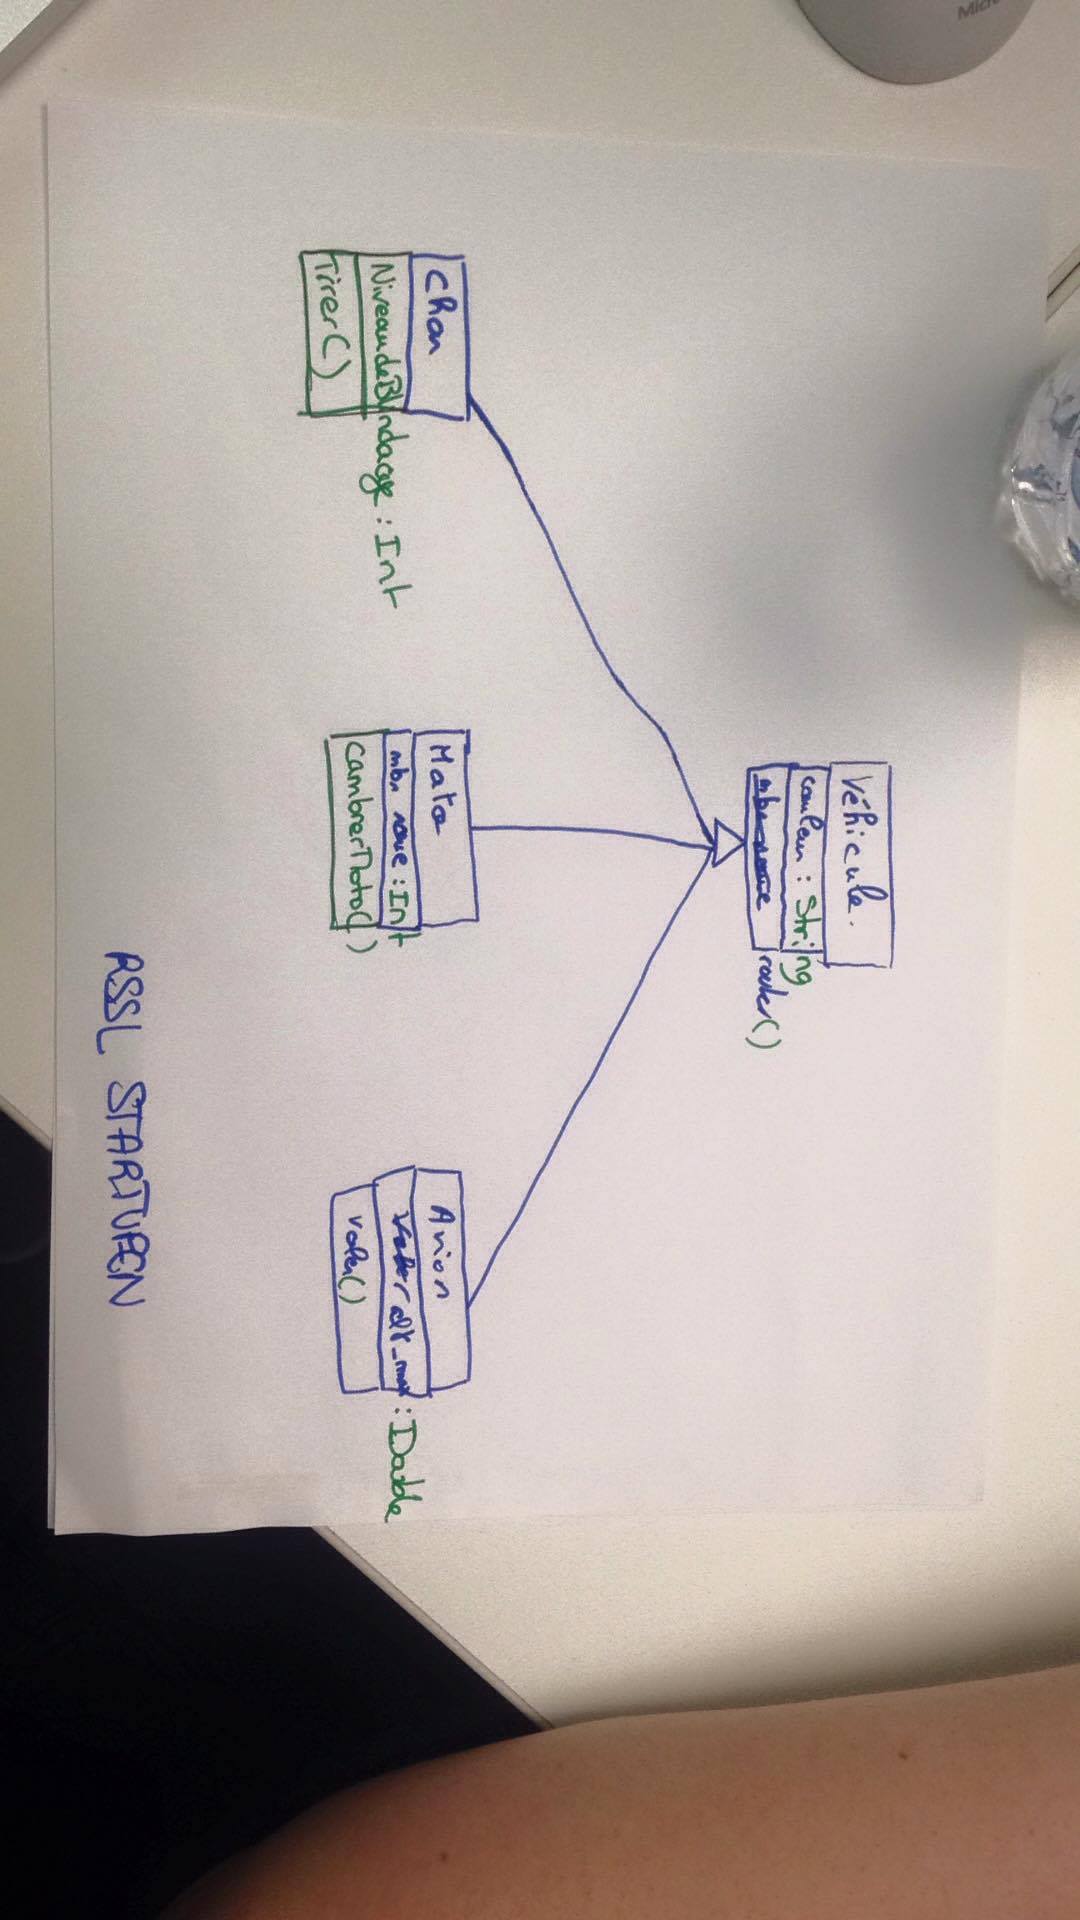 Véhicule.
couleur : String
nbr roue rouler()
Char
NiveaudeBlindage : Int
Tirer()
Moto
nbr roue : Int
CambrerMoto()
Avion
alt_max : Double
voler()
RSSL STARTUPEN